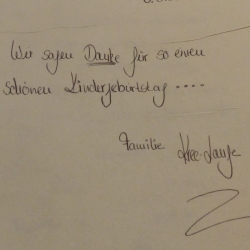 Wir sagen Danke für so einen
schönen Kindergeburtstag ....
Familie